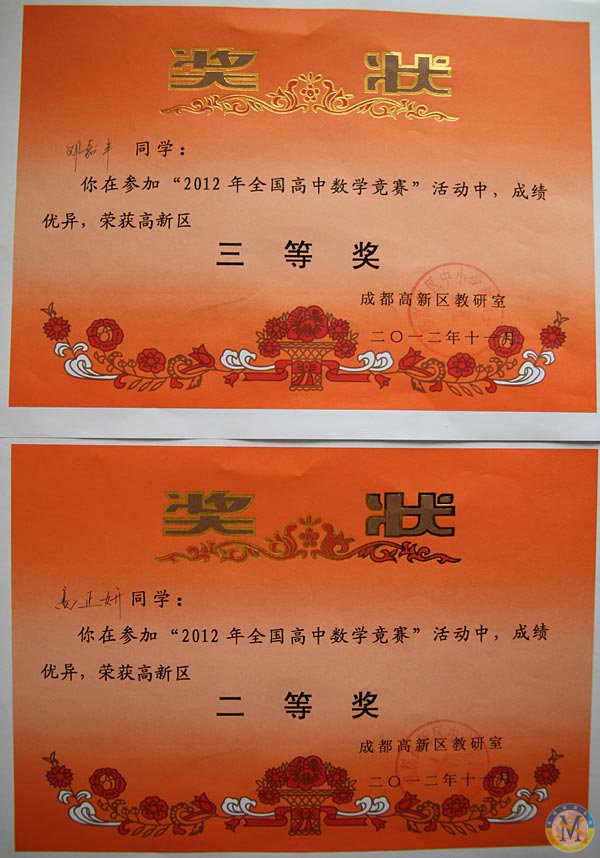 奖 状
邓嘉丰 同学：
你在参加“2012 年全国高中数学竞赛”活动中，成绩
优异，荣获高新区
三 等 奖
成都高新区教研室
二〇一二年十一月
奖 状
高正妍 同学：
你在参加“2012 年全国高中数学竞赛”活动中，成绩
优异，荣获高新区
二 等 奖
成都高新区教研室
二〇一二年十一月
M